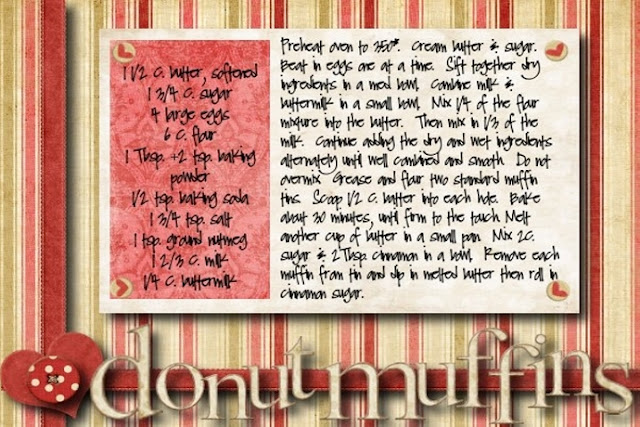 1 1/2 C. butter, softened
1 3/4 C. sugar
4 large eggs
6 C. flour
1 Tbsp. +2 tsp. baking
powder
1/2 tsp. baking soda
1 3/4 tsp. salt
1 tsp. ground nutmeg
1 2/3 C. milk
1/4 C. buttermilk
Preheat oven to 350°. Cream butter & sugar.
Beat in eggs one at a time. Sift together dry
ingredients in a med bowl. Combine milk &
buttermilk in a small bowl. Mix 1/4 of the flour
mixture into the butter. Then mix in 1/3 of the
milk. Continue adding the dry and wet ingredients
alternately until well combined and smooth. Do not
overmix. Grease and flour two standard muffin
tins. Scoop 1/2 C. batter into each hole. Bake
about 30 minutes, until firm to the touch. Melt
another cup of butter in a small pan. Mix 2C.
sugar & 2 Tbsp cinnamon in a bowl. Remove each
muffin from tin and dip in melted butter then roll in
cinnamon sugar.
donut muffins